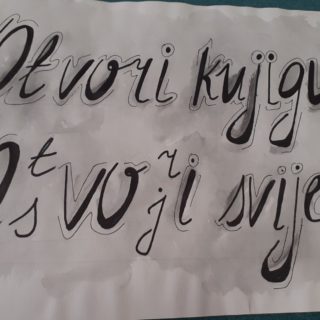 Otvori knjigu
Otsvorji svije